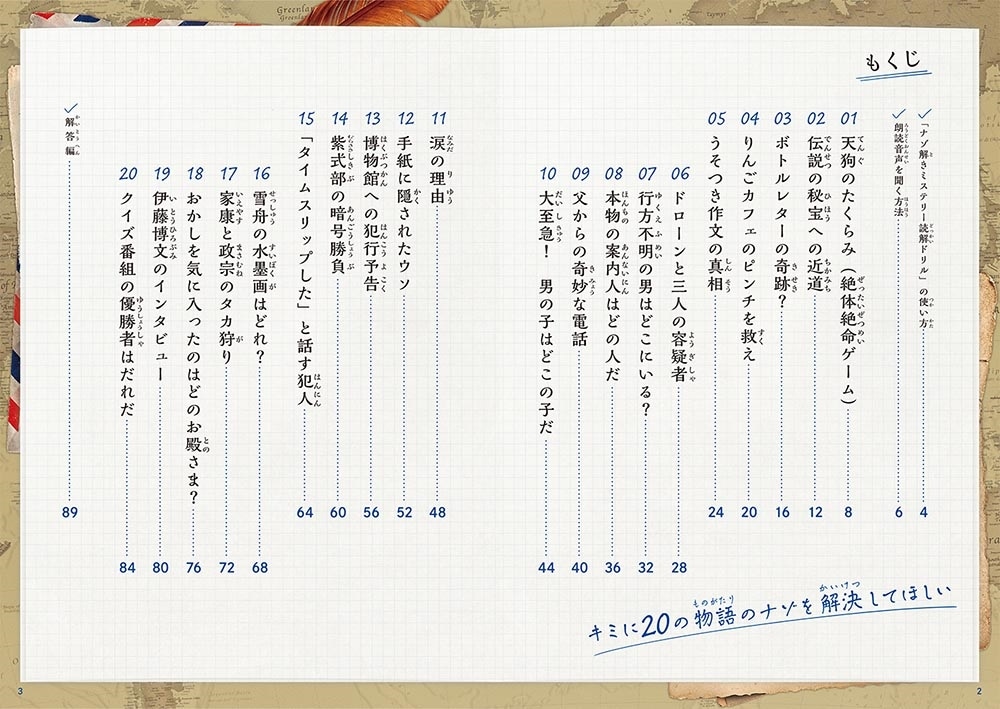 もくじ
「ナゾ解きミステリー読解ドリル」の使い方 4
朗読音声を聞く方法 6
01 天狗のたくらみ（絶体絶命ゲーム） 8
02 伝説の秘宝への近道 12
03 ボトルレターの奇跡？ 16
04 りんごカフェのピンチを救え 20
05 うそつき作文の真相 24
06 ドローンと三人の容疑者 28
07 行方不明の男はどこにいる？ 32
08 本物の案内人はどの人だ 36
09 父からの奇妙な電話 40
10 大至急！　男の子はどこの子だ 44
キミに20の物語のナゾを解決してほしい
2
11 涙の理由 48
12 手紙に隠されたウソ 52
13 博物館への犯行予告 56
14 紫式部の暗号勝負 60
15 「タイムスリップした」と話す犯人 64
16 雪舟の水墨画はどれ？ 68
17 家康と政宗のタカ狩り 72
18 おかしを気に入ったのはどのお殿さま？ 76
19 伊藤博文のインタビュー 80
20 クイズ番組の優勝者はだれだ 84
解答編 89
3